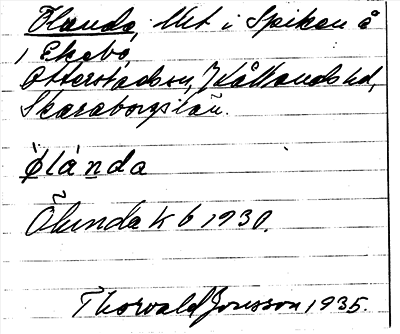 Ölanda, Vret i Spiken å
1 Ekebo,
Otterstads sn, Kållands hd,
Skaraborgs län.
Ølànda
Ölunda k 6 1930.
Thorvald Jonsson 1935.